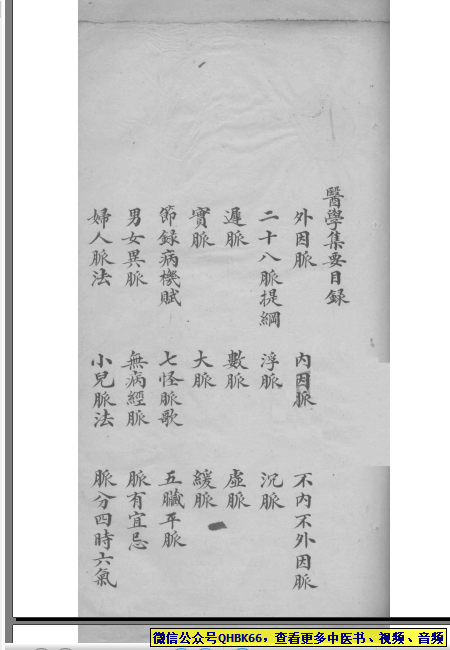 醫學集要目錄
外因脈 內因脈 不內不外因脈
二十八脈提綱 浮脈 沉脈
遲脈 數脈 虛脈
實脈 大脈 緩脈
節錄病機賦 七怪脈歌 五臟平脈
男女異脈 無病經脈 脈有宜忌
婦人脈法 小兒脈法 脈分四時六氣
微信公众号QHBK66，查看更多中医书、视频、音频